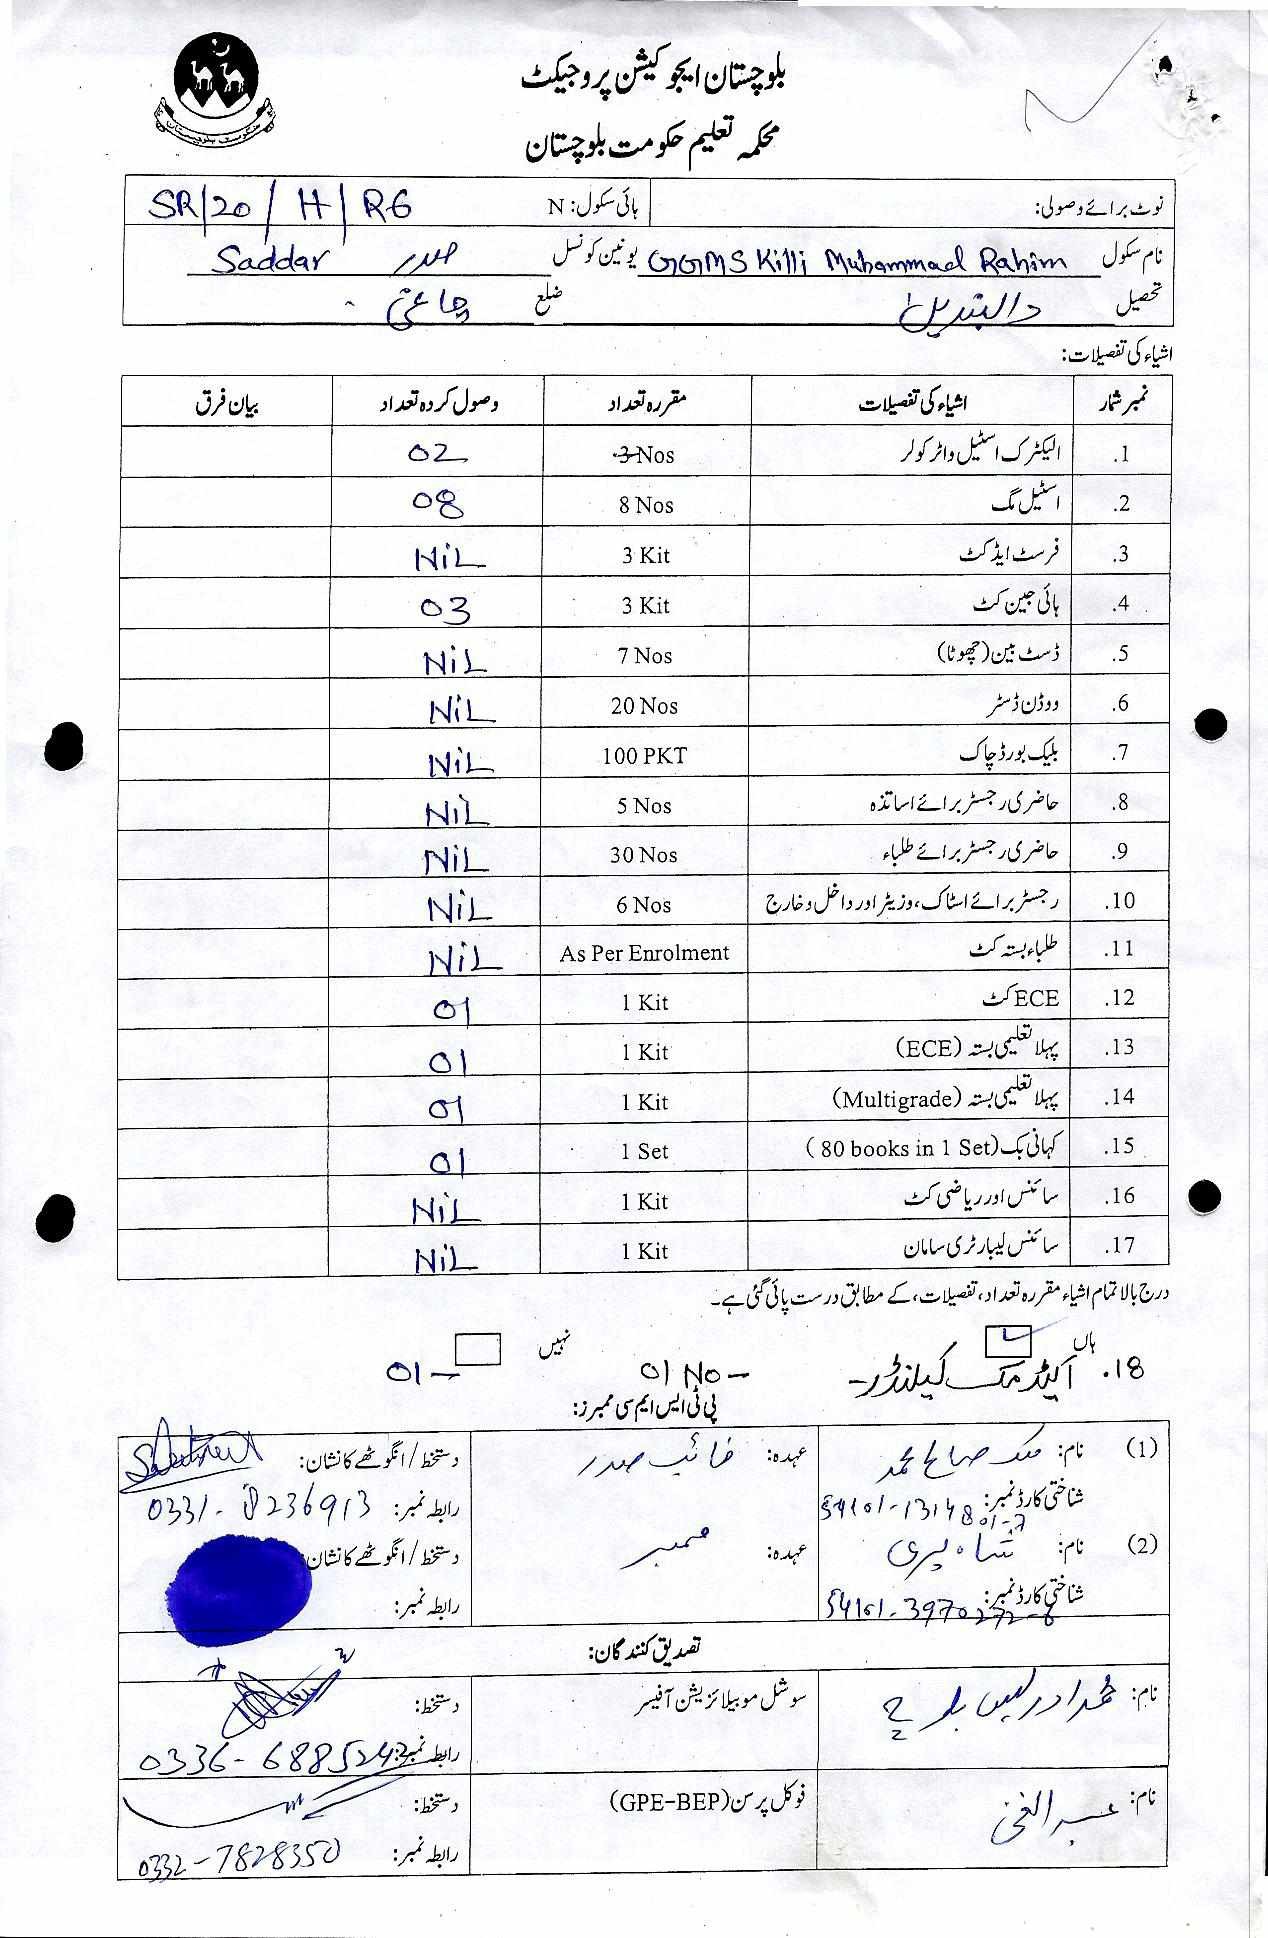 حکومت بلوچستان
بلوچستان ایجوکیشن پروجیکٹ
محکمہ تعلیم حکومت بلوچستان
نوٹ برائے وصولی: ہائی سکول: N SR/20/H/RG
نام سکول GGMS Killi Muhammad Rahim یونین کونسل صدر Saddar
تحصیل دالبندین ضلع چاغی
اشیاء کی تفصیلات:
نمبر شمار اشیاء کی تفصیلات مقررہ تعداد وصول کردہ تعداد بیان فرق
1. الیکٹرک اسٹیل واٹر کولر 3 Nos 02
2. اسٹیل مگ 8 Nos 08
3. فرسٹ ایڈ کٹ 3 Kit NiL
4. ہائی جین کٹ 3 Kit 03
5. ڈسٹ بین (چھوٹا) 7 Nos NiL
6. ووڈن ڈسٹر 20 Nos NiL
7. بلیک بورڈ چاک 100 PKT NiL
8. حاضری رجسٹر برائے اساتذہ 5 Nos NiL
9. حاضری رجسٹر برائے طلباء 30 Nos NiL
10. رجسٹر برائے اسٹاک، وزیٹر اور داخل و خارج 6 Nos NiL
11. طلباء بستہ کٹ As Per Enrolment NiL
12. ECE کٹ 1 Kit 01
13. پہلا تعلیمی بستہ (ECE) 1 Kit 01
14. پہلا تعلیمی بستہ (Multigrade) 1 Kit 01
15. کہانی بک (80 books in 1 Set) 1 Set 01
16. سائنس اور ریاضی کٹ 1 Kit NiL
17. سائنس لیبارٹری سامان 1 Kit NiL
درج بالا تمام اشیاء مقررہ تعداد، تفصیلات، کے مطابق درست پائی گئی ہے۔
ہاں نہیں
18. اکیڈمک کیلنڈر - 01 No - 01 -
پی ٹی ایس ایم سی ممبرز:
(1) نام: ملک صالح محمد عہدہ: نائب صدر دستخط / انگوٹھے کا نشان:
شناختی کارڈ نمبر: 54101-1314801-7 رابطہ نمبر: 0331-8236913
(2) نام: شاہ پری عہدہ: ممبر دستخط / انگوٹھے کا نشان:
شناختی کارڈ نمبر: 54101-3970272-6 رابطہ نمبر:
تصدیق کنندگان:
نام: محمد ادریس بلوچ سوشل موبیلائزیشن آفیسر دستخط:
رابطہ نمبر: 0336-6885242
نام: عبدالغنی فوکل پرسن (GPE-BEP) دستخط:
رابطہ نمبر: 0332-7828350